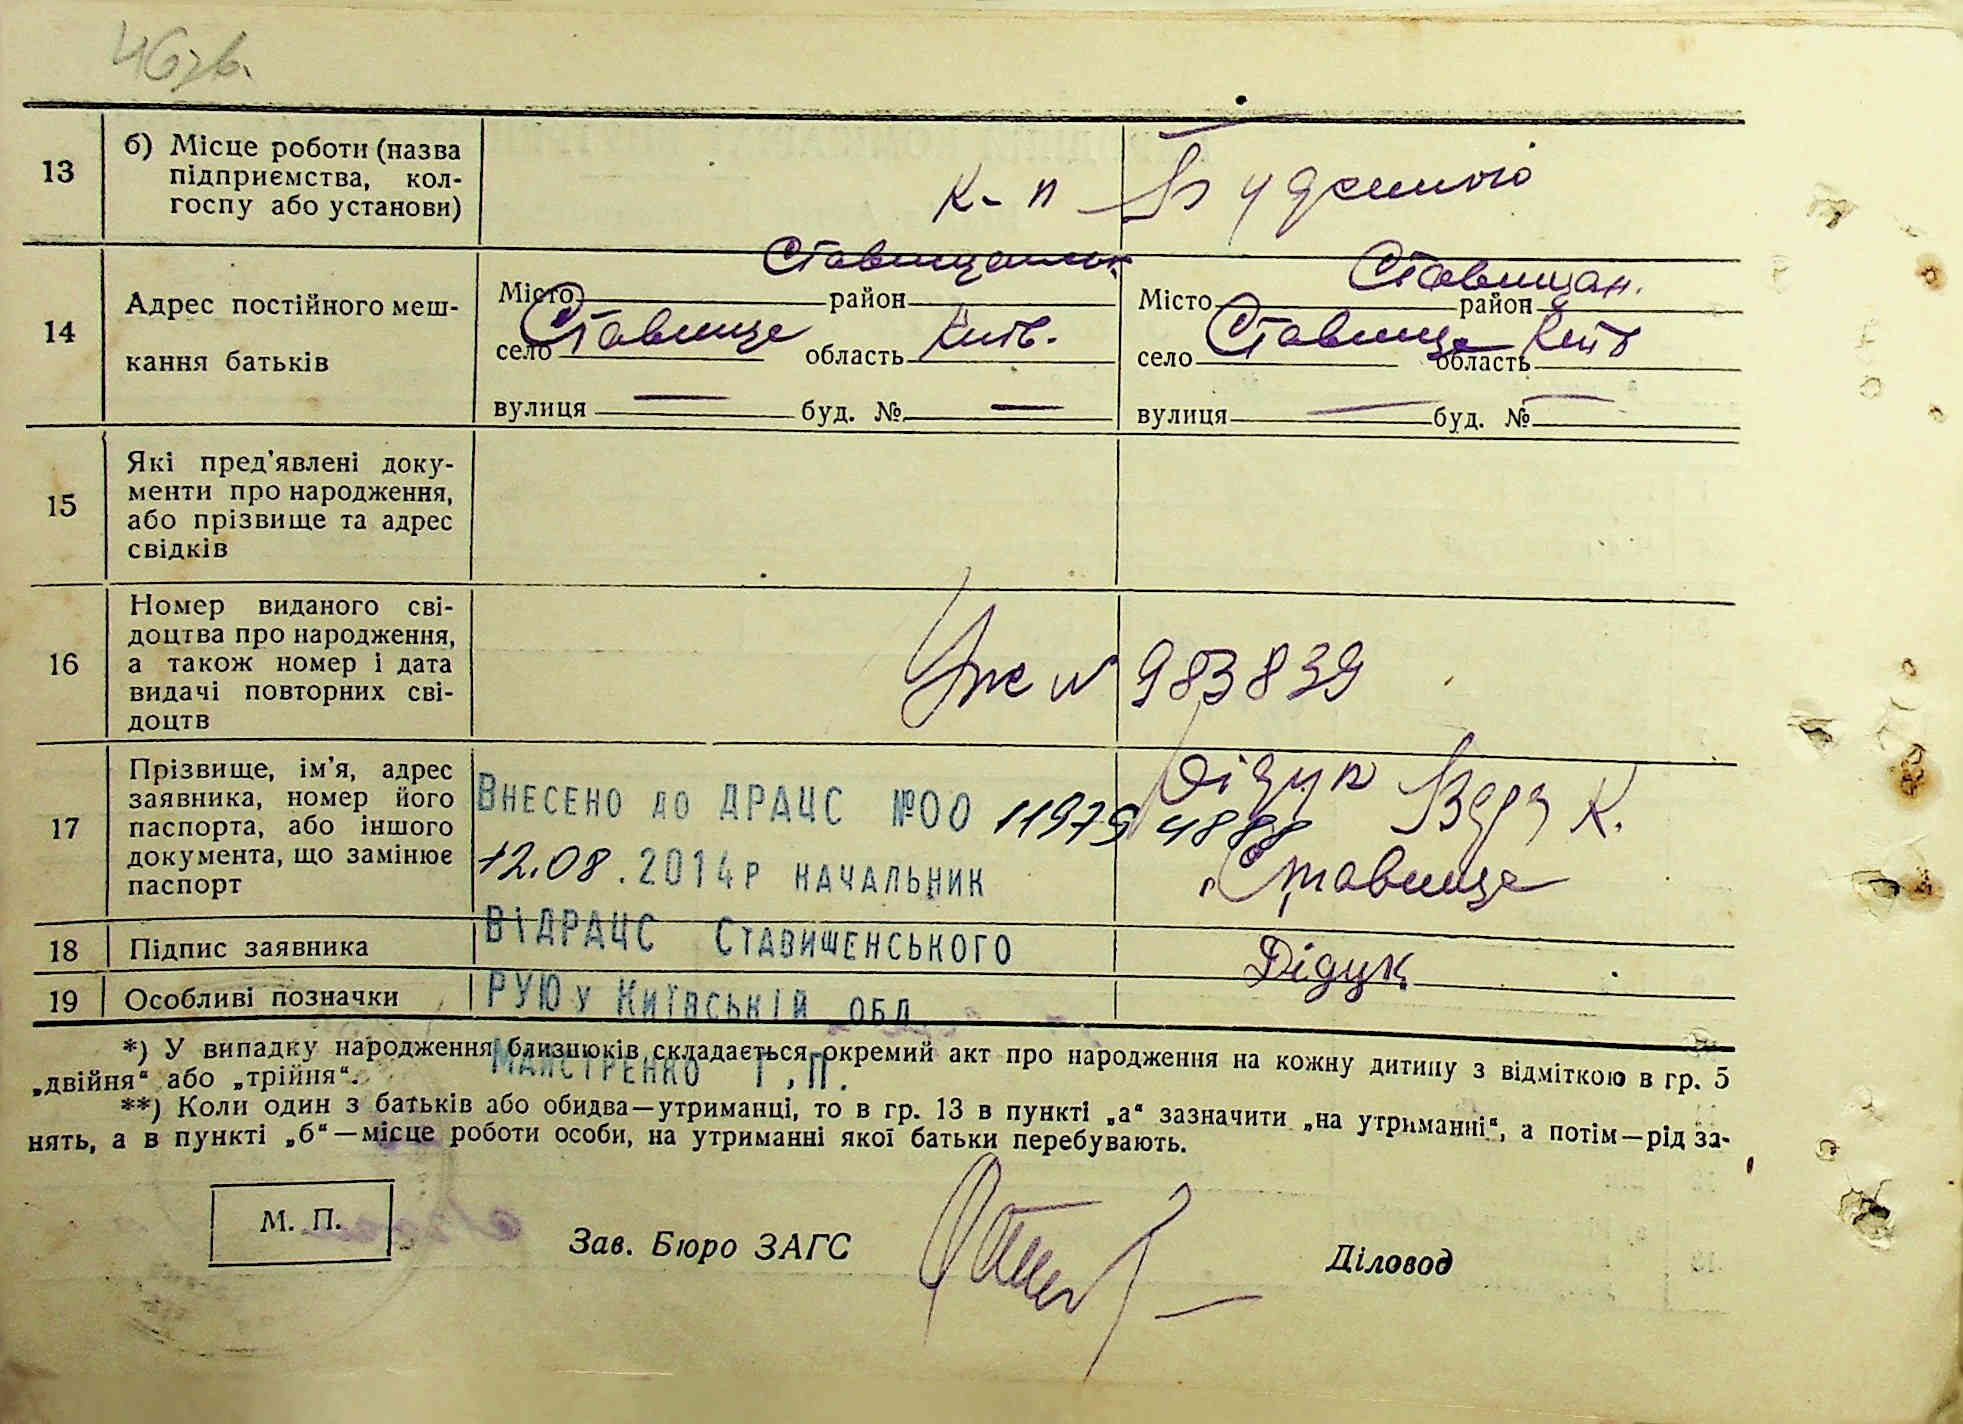 46 зв.
13 б) Місце роботи (назва підприємства, кол-
госпу або установи)
к-п Будьонного
14 Адрес постійного меш-
кання батьків
Місто Ставищанськ. район
село Ставище область Київ.
вулиця — буд. № —
Місто Ставищан. район
село Ставище область Київ
вулиця — буд. № —
15 Які пред'явлені доку-
менти про народження,
або прізвище та адрес
свідків
16 Номер виданого сві-
доцтва про народження,
а також номер і дата
видачі повторних сві-
доцтв
№ 983839
17 Прізвище, ім'я, адрес
заявника, номер його
паспорта, або іншого
документа, що замінює
паспорт
Дідук Вера К.
Ставище
Внесено до ДРАЦС №00 11979 4888
12.08.2014р начальник
ВіДРАЦС Ставишенського
РУЮ у Київській обл
Майстренко Т.П.
18 Підпис заявника
Дідук
19 Особливі позначки
*) У випадку народження близнюків складається окремий акт про народження на кожну дитину з відміткою в гр. 5
„двійня“ або „трійня“.
**) Коли один з батьків або обидва—утриманці, то в гр. 13 в пункті „а“ зазначити „на утриманні“, а потім—рід за-
нять, а в пункті „б“—місце роботи особи, на утриманні якої батьки перебувають.
М. П.
Зав. Бюро ЗАГС
Діловод